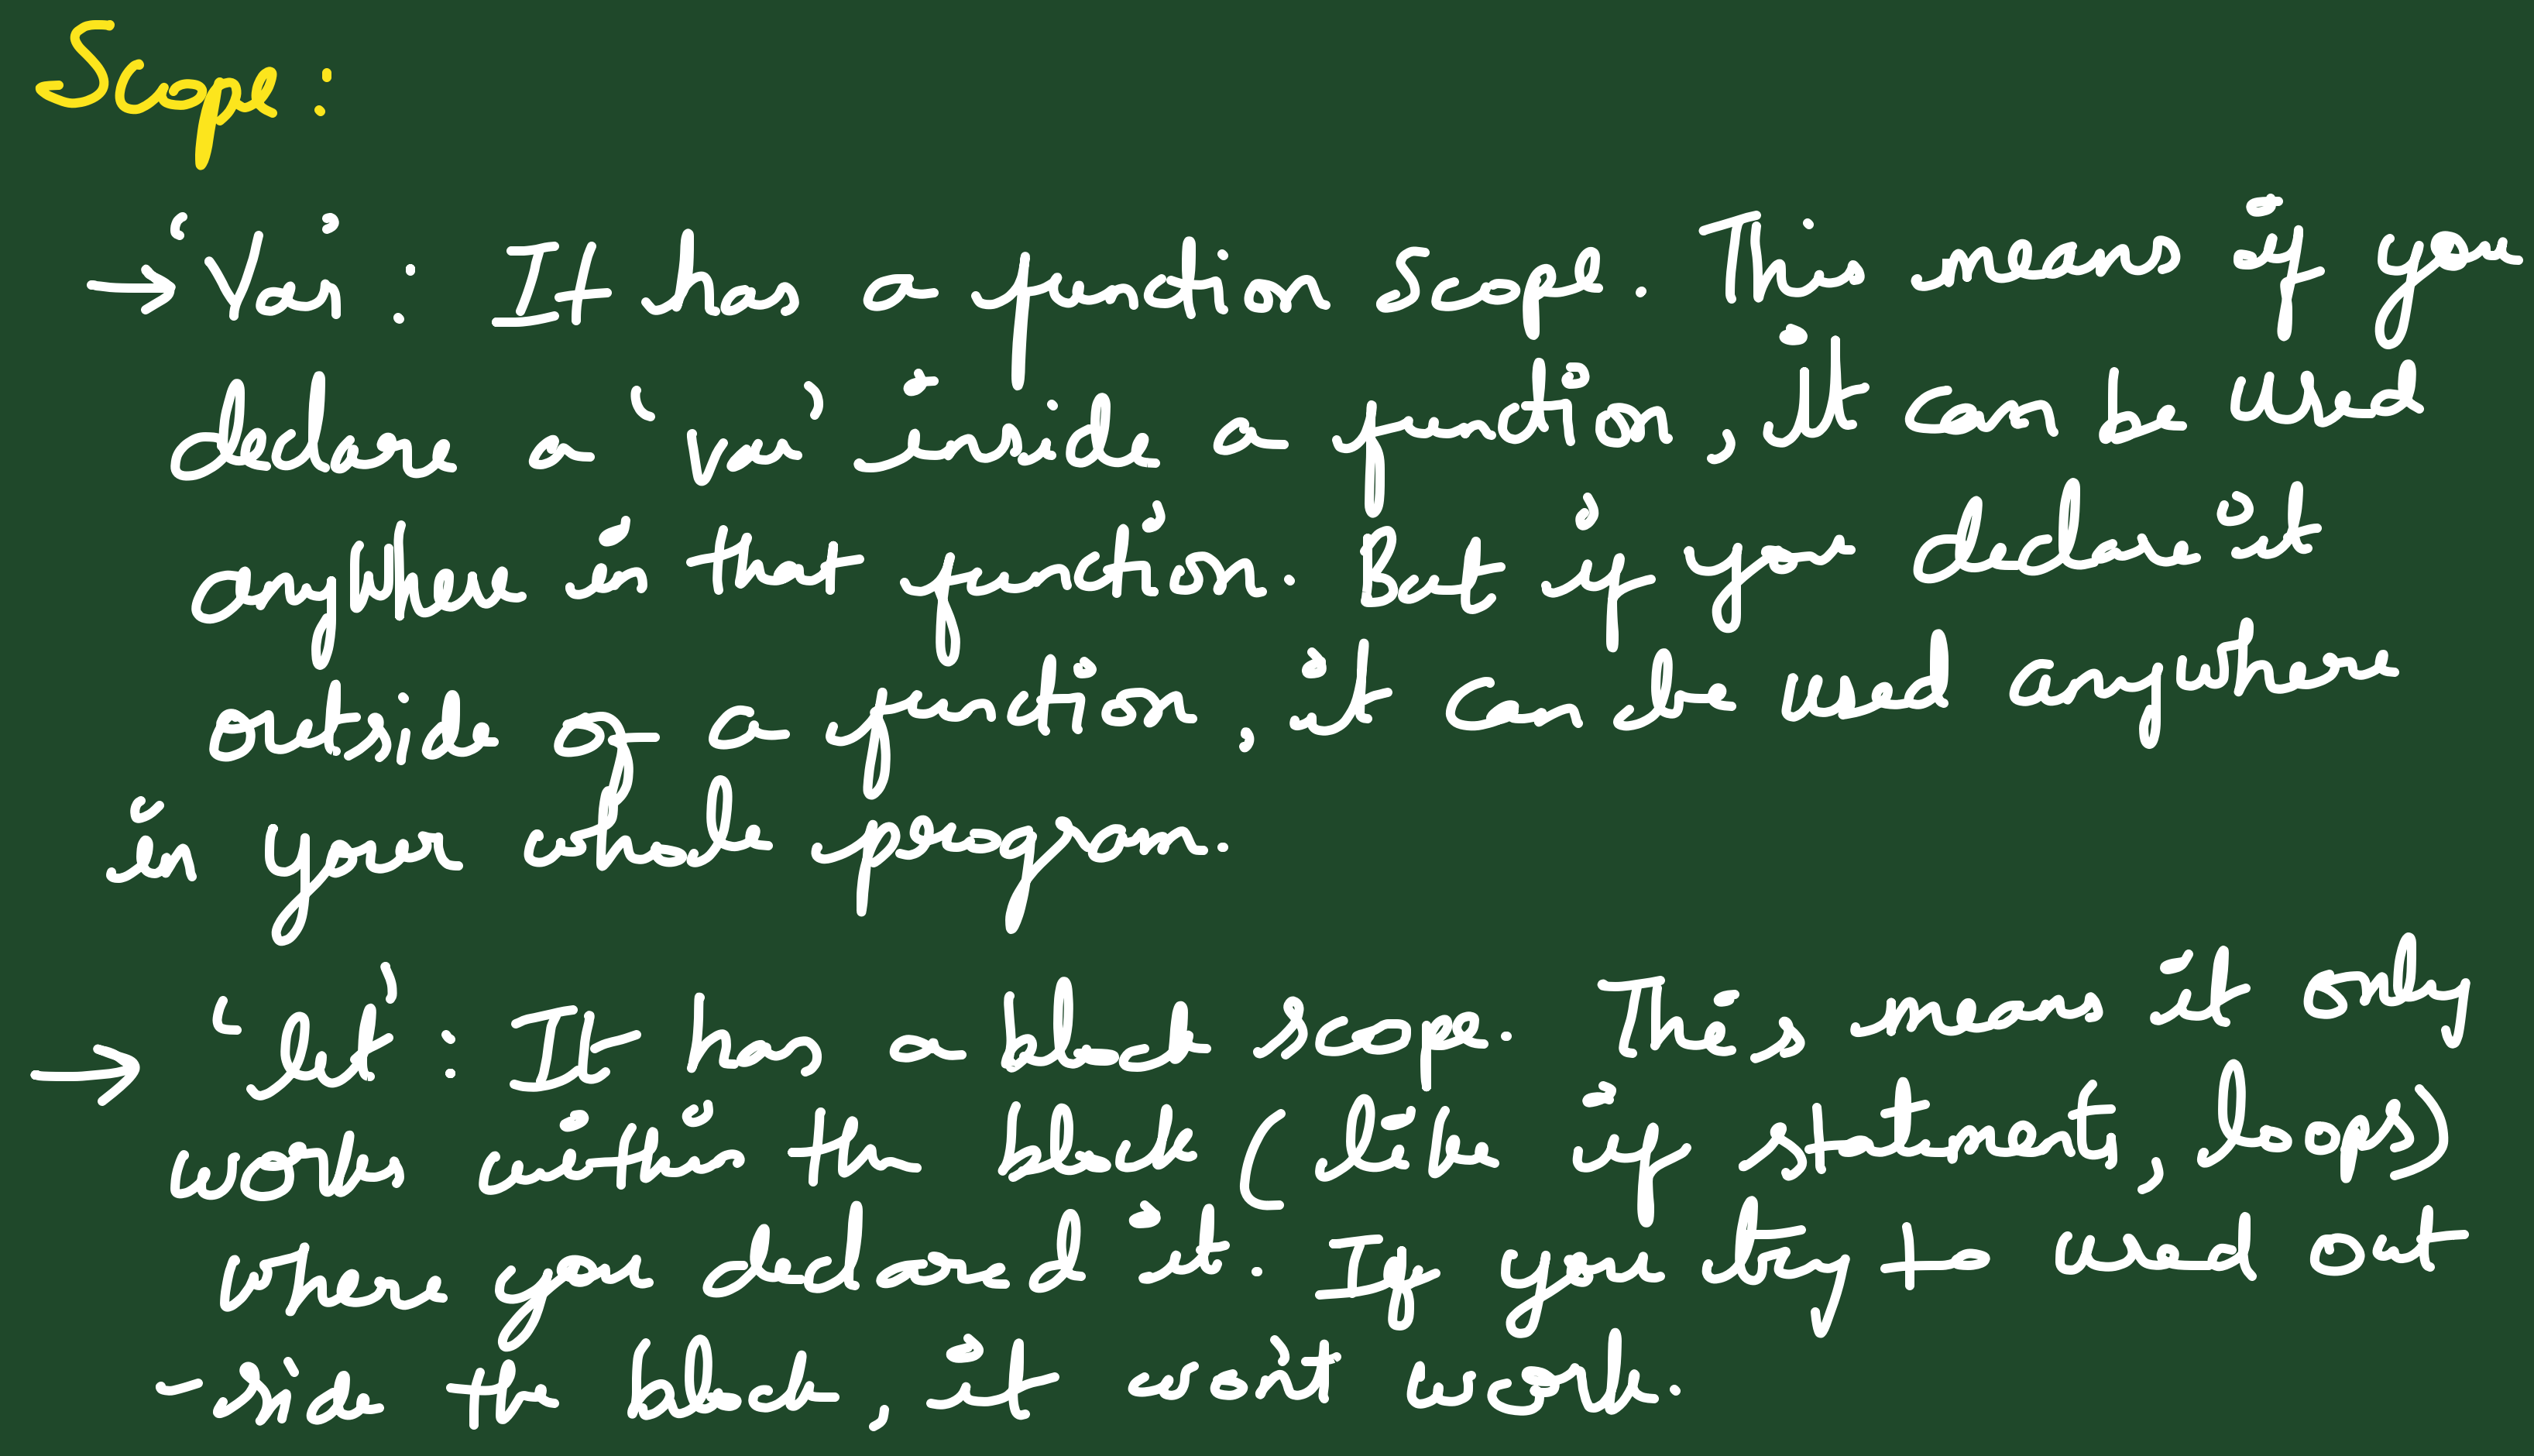 Scope :
→ 'Var' : It has a function Scope. This means if you
declare a 'var' inside a function, it can be used
anywhere in that function. But if you declare it
outside of a function, it can be used anywhere
in your whole program.
→ 'let' : It has a block scope. This means it only
works within the block (like if statements, loops)
where you declared it. If you try to used out
-side the block, it won't work.